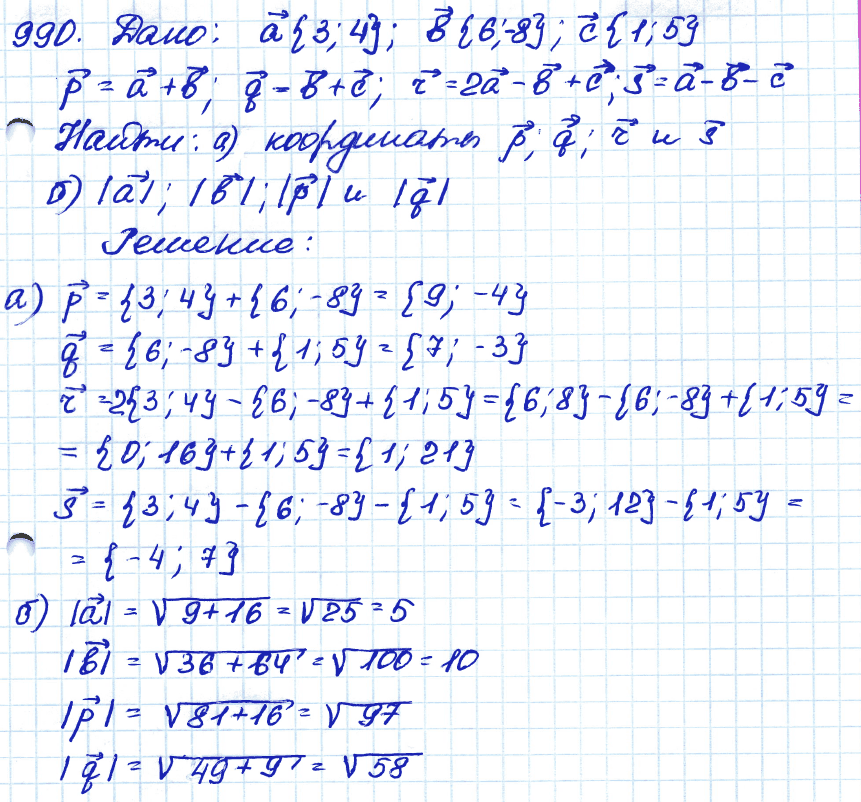 990. Дано: a⃗{3; 4}; b⃗{6;-8}; c⃗{1; 5}
p⃗ = a⃗ + b⃗; q⃗ = b⃗ + c⃗; r⃗ = 2a⃗ - b⃗ + c⃗; s⃗ = a⃗ - b⃗ - c⃗
Найти: а) координаты p⃗; q⃗; r⃗ и s⃗
б) |a⃗|; |b⃗|; |p⃗| и |q⃗|
Решение:
а) p⃗ = {3; 4} + {6; -8} = {9; -4}
q⃗ = {6; -8} + {1; 5} = {7; -3}
r⃗ = 2{3; 4} - {6; -8} + {1; 5} = {6; 8} - {6; -8} + {1; 5} =
= {0; 16} + {1; 5} = {1; 21}
s⃗ = {3; 4} - {6; -8} - {1; 5} = {-3; 12} - {1; 5} =
= {-4; 7}
б) |a⃗| = √9+16 = √25 = 5
|b⃗| = √36+64 = √100 = 10
|p⃗| = √81+16 = √97
|q⃗| = √49+9 = √58